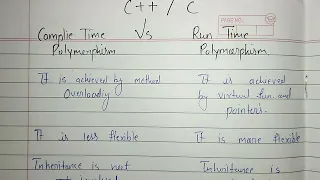 C++ / C
PAGE NO.
Complie Time Vs Run Time
Polymorphism Polymorphism
It is achieved by method It is achieved
Overloadig by virtual fun. and
pointers.
It is less flexible It is more flexible
Inheritance is not Inheritance is